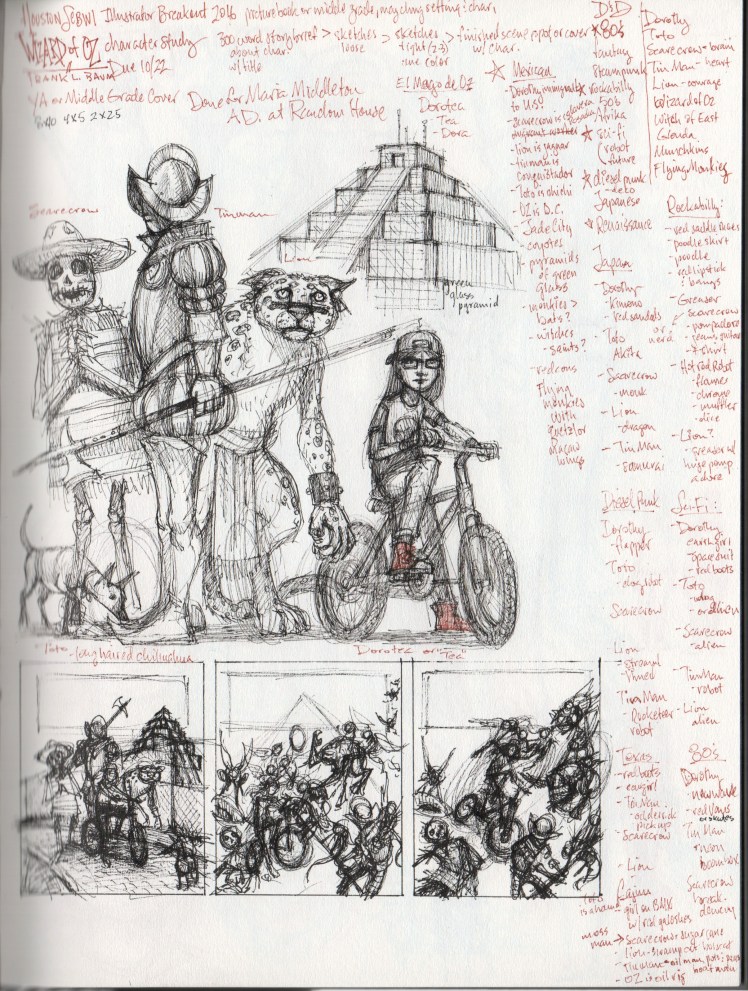 Houston SCBWI Illustrator Breakout 2016 picture book or middle grade, may chng setting & char.
WIZARD of OZ character study
300 word story brief > sketches > sketches > finished scene, spot, or cover
about char. loose tight (2-3) w/ char.
w/ title one color
FRANK L. BAUM Due 10/22
YA or Middle Grade Cover Done for Maria Middleton
8x10 4x5 2x2.5 A.D. at Random House
El Mago de Oz
Dorotea
- Tea
- Dora
Scarecrow
Tinman
Lion
green
glass
pyramid
Toto - long haired chihuahua
Dorotea or "Tea"
Mexican
- Dorothy immigrants
to US?
- Scarecrow is
- lion is jaguar
- tinman is
conquistador
- Toto is
- OZ is D.C.
- Jade City
- coyotes
- pyramids
of green
glass
- monkies >
bats?
- witches
- saints?
- redcons
Flying
monkies
with
quetzal or
macaw
wings
D&D
80's
fantasy
steampunk
rockabilly
50's
Afrika
sci-fi
(robot
future
dieselpunk
- deto
Japanese
Renaissance
Dorothy
Toto
Scarecrow - brain
Tin Man - heart
Lion - courage
Wizard of Oz
Witch of East
Glenda
Munchkins
Flying Monkies
Japan
Dorothy
- kimono
- red sandals
- Toto
Akita
- Scarecrow
- monk
- Lion
- dragon
- Tin Man
- samurai
Rockabilly:
- red saddle shoes
- poodle skirt
- poodle
- red lipstick
& bangs
- Greaser
or nerd
scarecrow
- pompadore
- jeans, guitar
- t-shirt
- Hot rod Robot
- flames
- chrome
- muffler
- dice
- Lion?
- greaser w/
huge pomp
adore
Diesel Punk
Dorothy
- flapper
Toto
- dog bot
Scarecrow
Lion
- stream
lined
Tin Man
- Rocketeer
robot
Sci-Fi:
- Dorothy
earth girl
space suit
- red boots
- Toto
- dog
- or alien
- Scarecrow
- alien
- Tin Man
- robot
- Lion
alien
Texas
- red boots
- cowgirl
- Tin Man
- oil derrick
pick up
- Scarecrow
- Lion
80's
Dorothy
- new wave
- red Vans
or skates
Tin Man
- moon
boombox
Scarecrow
break-
dancing
Cajun
- girl on BMX
w/ red galoshes
moss
man -> scarecrow - sugar cane
- OZ is oil rig